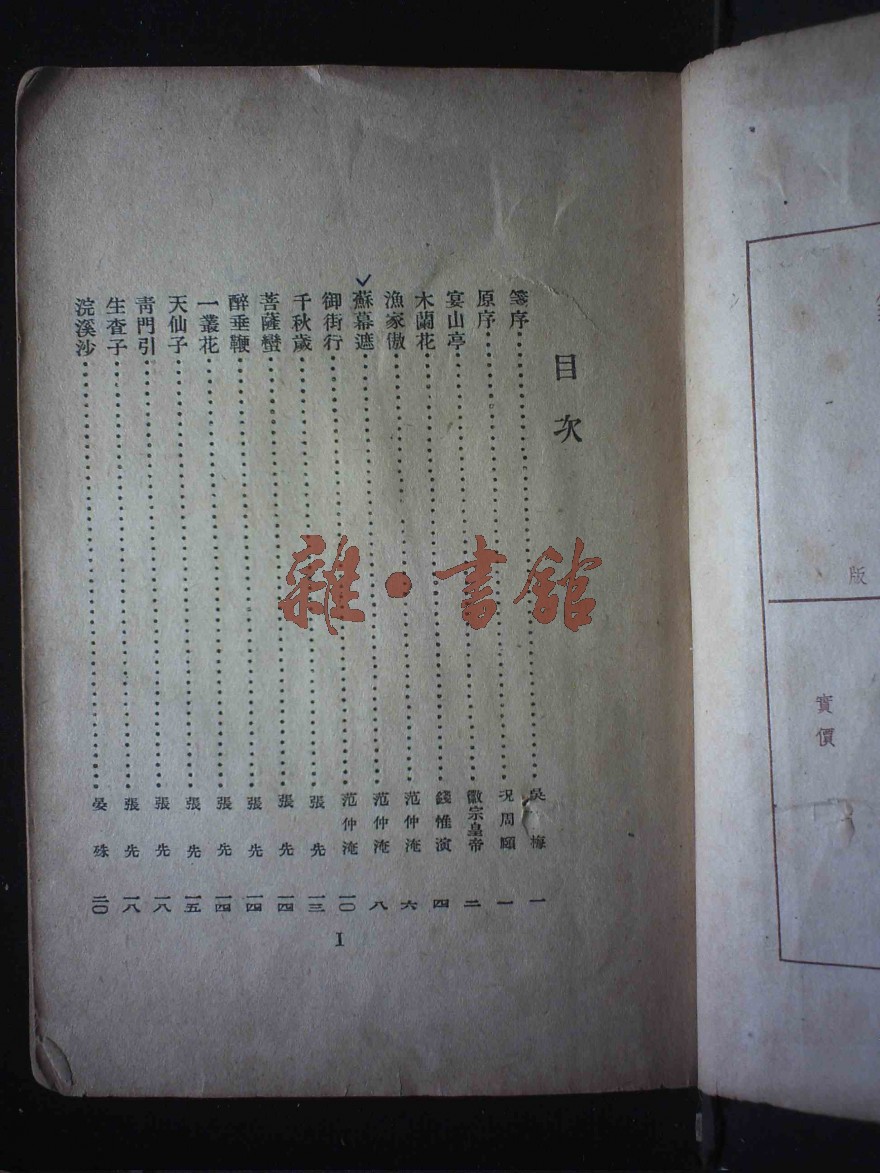 目次
箋序 吳梅 一
原序 况周頤 一
宴山亭 徽宗皇帝 二
木蘭花 錢惟演 四
漁家傲 范仲淹 六
蘇幕遮 范仲淹 八
御街行 范仲淹 一〇
千秋歲 張先 一三
菩薩蠻 張先 一四
醉垂鞭 張先 一四
一叢花 張先 一四
天仙子 張先 一五
青門引 張先 一八
生查子 張先 一八
浣溪沙 晏殊 二〇
I
版
實價
雜·書館